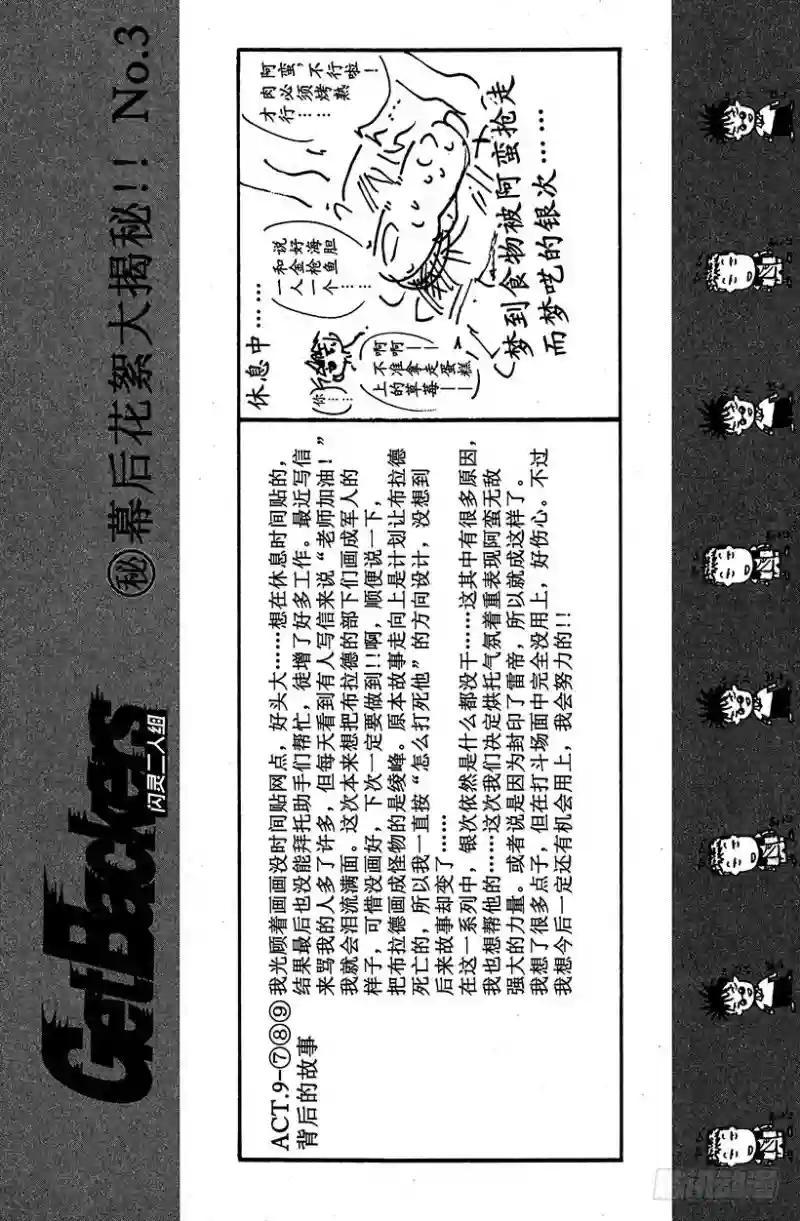 GetBackers
闪灵二人组
㊙幕后花絮大揭秘!! No.3
ACT.9-⑦⑧⑨
背后的故事
我光顾着画画没时间贴网点，好头大……想在休息时间贴的，
结果最后也没能拜托助手们帮忙，徒增了好多工作。最近写信
来骂我的人多了许多，但每天看到有人写信来说“老师加油！”
我就会泪流满面。这次本来想把布拉德的部下们画成军人的
样子，可惜没画好，下次一定要做到!!啊，顺便说一下，
把布拉德画成怪物的是绫峰。原本故事走向上是计划让布拉德
死亡的，所以我一直按“怎么打死他”的方向设计，没想到
后来故事却变了……
在这一系列中，银次依然是什么都没干……这其中有很多原因，
我也想帮他的……这次我们决定烘托气氛着重表现阿蛮无敌
强大的力量。或者说是因为封印了雷帝，所以就成这样了。
我想了很多点子，但在打斗场面中完全没用上，好伤心。不过
我想今后一定还有机会用上，我会努力的!!
休息中……
(你……
啊啊——
不准拿走蛋糕
上的草莓——
说好海胆
和金枪鱼
一人一个……
阿蛮，不行啦！
肉必须烤熟
才行……
梦到食物被阿蛮抢走
而梦呓的银次……